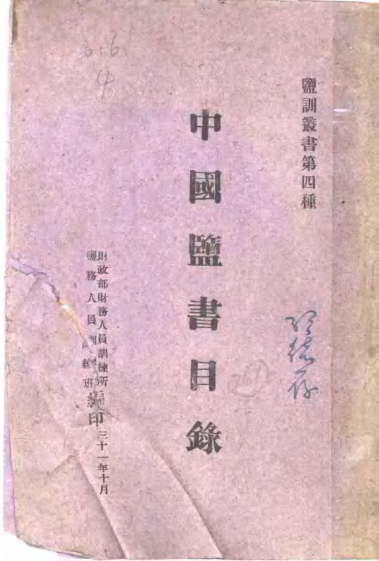 鹽訓叢書第四種
中國鹽書目錄
財政部財務人員訓練所
鹽務人員訓練班
印
三十一年十月
616
4